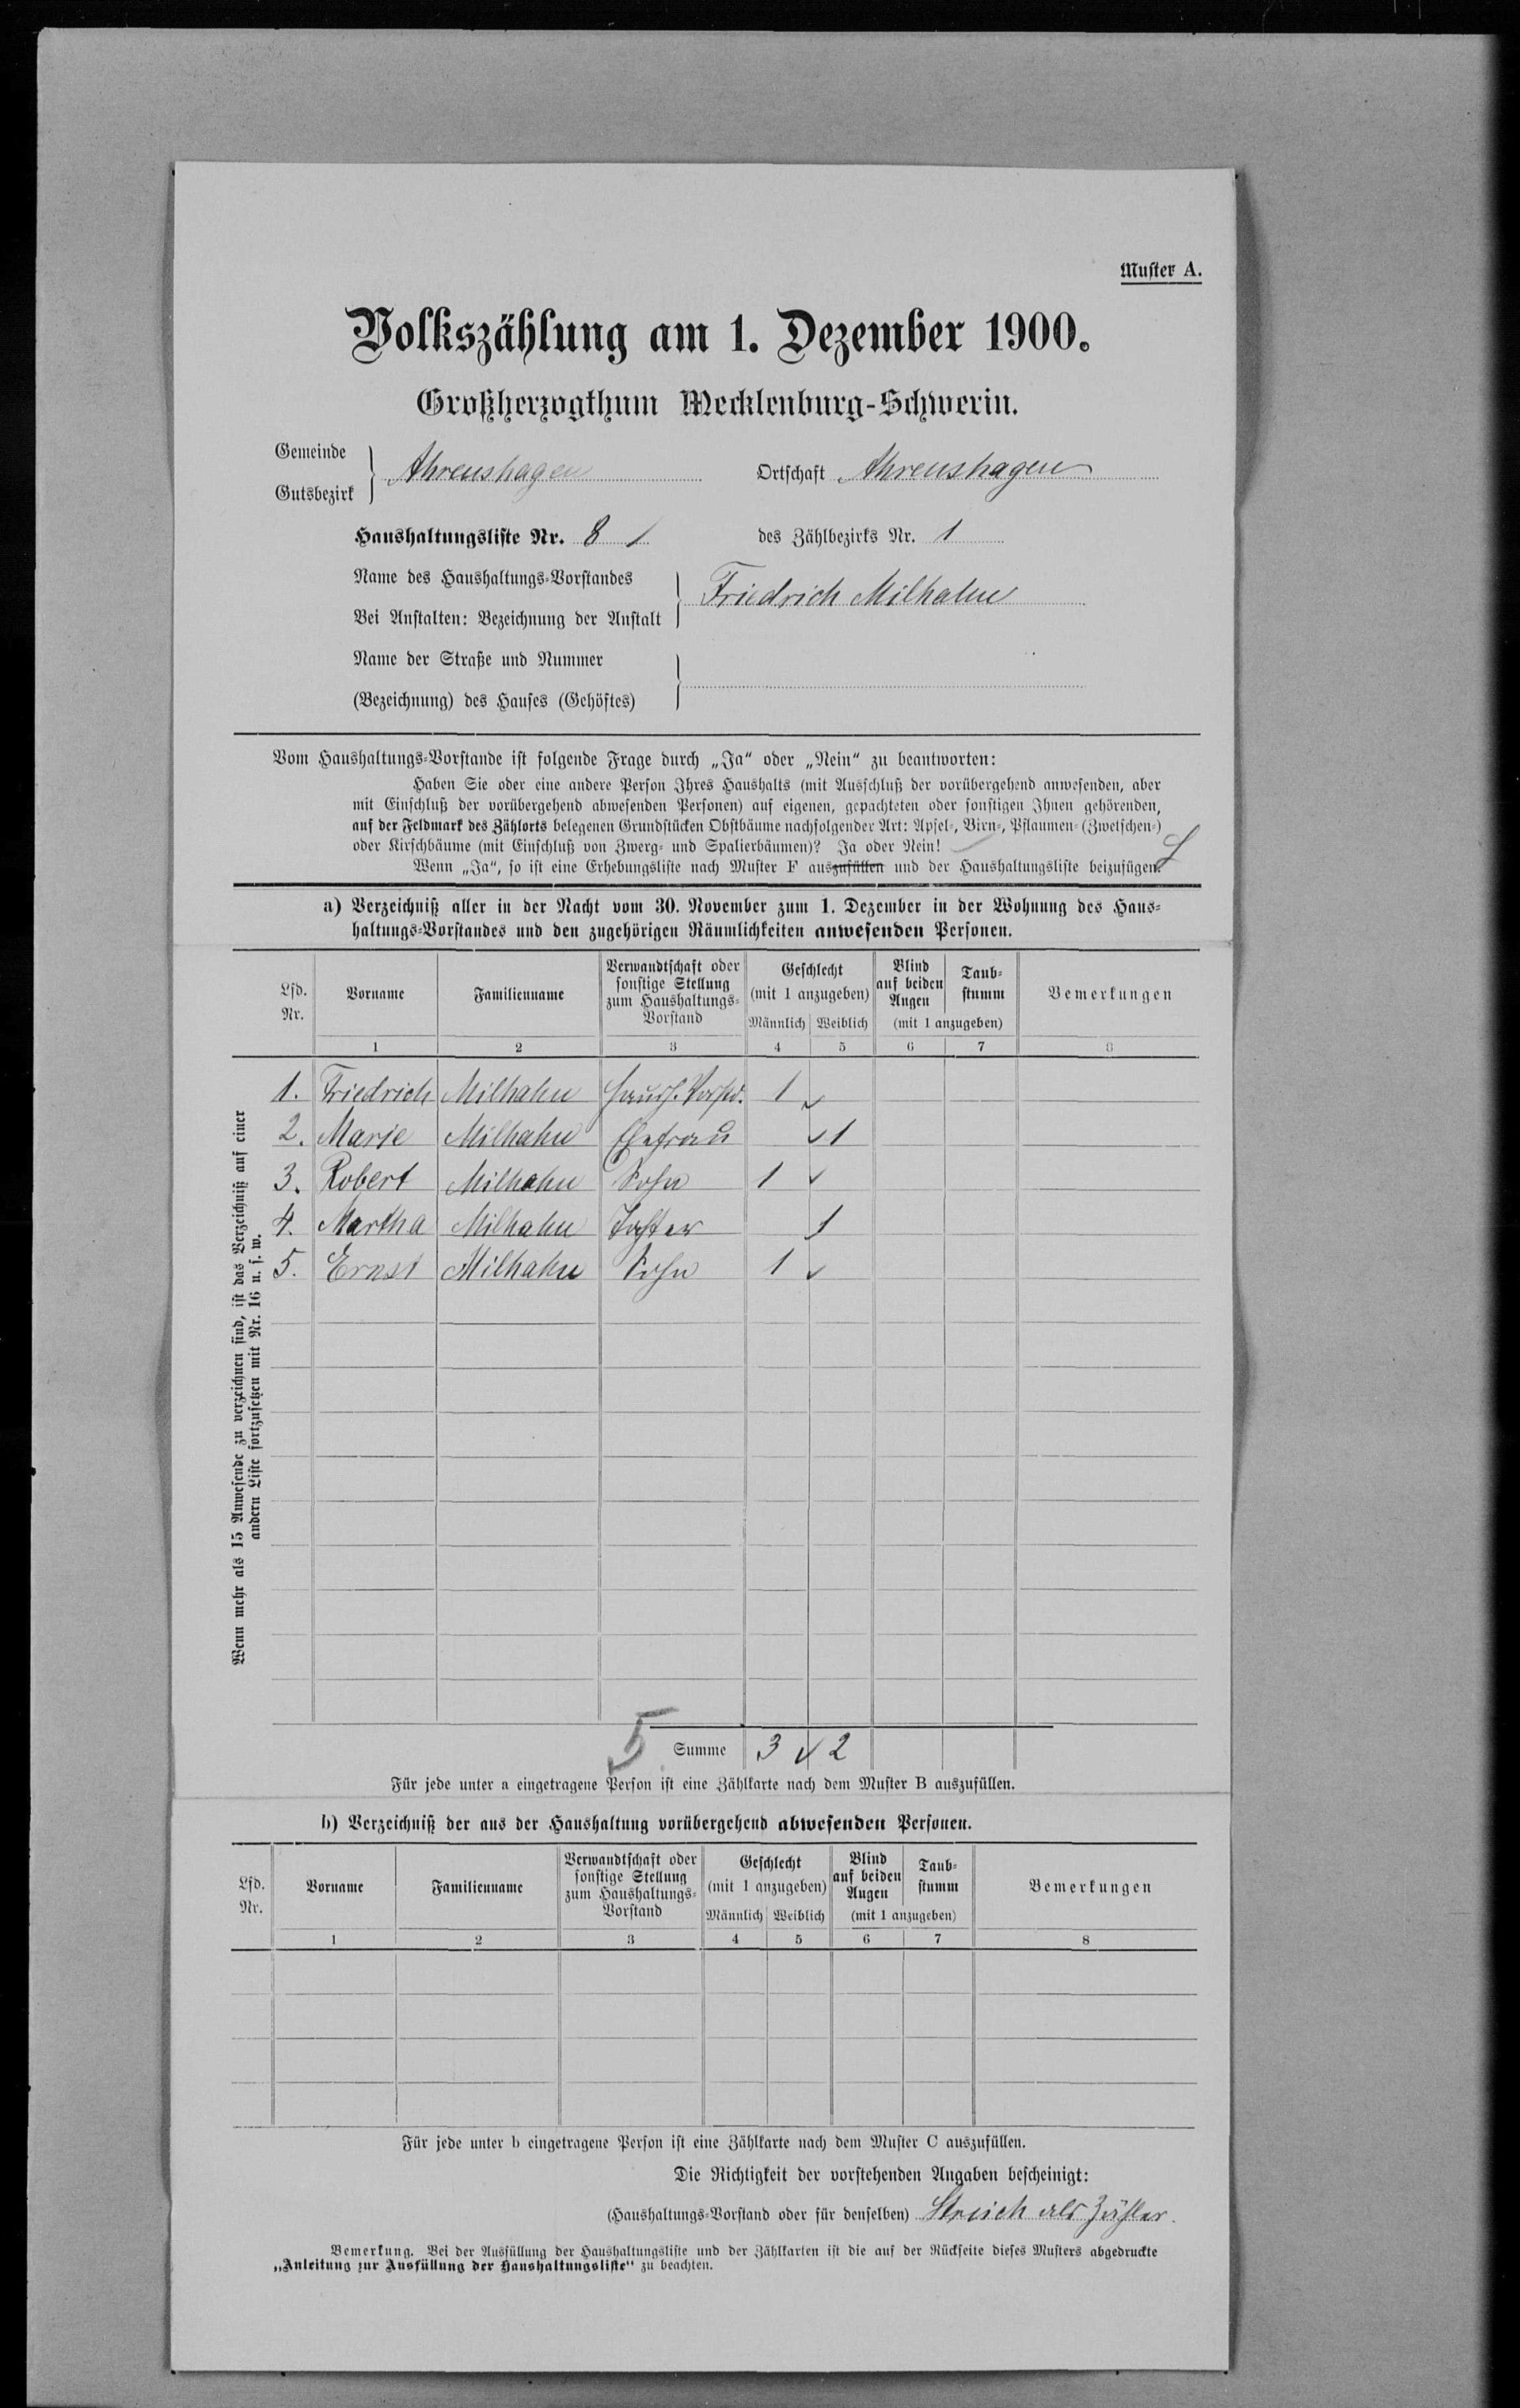 Muster A.
Volkszählung am 1. Dezember 1900.
Großherzogthum Mecklenburg-Schwerin.
Gemeinde
Gutsbezirk
Ahrenshagen Ortschaft Ahrenshagen
Haushaltungsliste Nr. 8 des Zählbezirks Nr. 1
Name des Haushaltungs-Vorstandes
Bei Anstalten: Bezeichnung der Anstalt
Friedrich Milhahn
Name der Straße und Nummer
(Bezeichnung) des Hauses (Gehöftes)
Vom Haushaltungs-Vorstande ist folgende Frage durch „Ja“ oder „Nein“ zu beantworten:
Haben Sie oder eine andere Person Ihres Haushalts (mit Ausschluß der vorübergehend anwesenden, aber
mit Einschluß der vorübergehend abwesenden Personen) auf eigenen, gepachteten oder sonstigen Ihnen gehörenden,
auf der Feldmark des Zählorts belegenen Grundstücken Obstbäume nachfolgender Art: Apfel-, Birn-, Pflaumen- (Zwetschen-)
oder Kirschbäume (mit Einschluß von Zwerg- und Spalierbäumen)? Ja oder Nein!
Wenn „Ja“, so ist eine Erhebungsliste nach Muster F auszufüllen und der Haushaltungsliste beizufügen.
a) Verzeichniß aller in der Nacht vom 30. November zum 1. Dezember in der Wohnung des Haus-
haltungs-Vorstandes und den zugehörigen Räumlichkeiten anwesenden Personen.
Lfd. Nr. Vorname Familienname Verwandtschaft oder sonstige Stellung zum Haushaltungs-Vorstand Geschlecht (mit 1 anzugeben) Männlich Weiblich Blind auf beiden Augen Taub-stumm (mit 1 anzugeben) Bemerkungen
1 2 3 4 5 6 7 8
1. Friedrich Milhahn Haush. Vorst. 1
2. Marie Milhahn Ehefrau 1
3. Robert Milhahn Sohn 1
4. Martha Milhahn Tochter 1
5. Ernst Milhahn Sohn 1
Wenn mehr als 15 Anwesende zu verzeichnen sind, ist das Verzeichniß auf einer
andern Liste fortzusetzen mit Nr. 16 u. s. w.
5 Summe 3 2
Für jede unter a eingetragene Person ist eine Zählkarte nach dem Muster B auszufüllen.
b) Verzeichniß der aus der Haushaltung vorübergehend abwesenden Personen.
Lfd. Nr. Vorname Familienname Verwandtschaft oder sonstige Stellung zum Haushaltungs-Vorstand Geschlecht (mit 1 anzugeben) Männlich Weiblich Blind auf beiden Augen Taub-stumm (mit 1 anzugeben) Bemerkungen
1 2 3 4 5 6 7 8
Für jede unter b eingetragene Person ist eine Zählkarte nach dem Muster C auszufüllen.
Die Richtigkeit der vorstehenden Angaben bescheinigt:
(Haushaltungs-Vorstand oder für denselben) als Zähler.
Bemerkung. Bei der Ausfüllung der Haushaltungsliste und der Zählkarten ist die auf der Rückseite dieses Musters abgedruckte
„Anleitung zur Ausfüllung der Haushaltungsliste“ zu beachten.